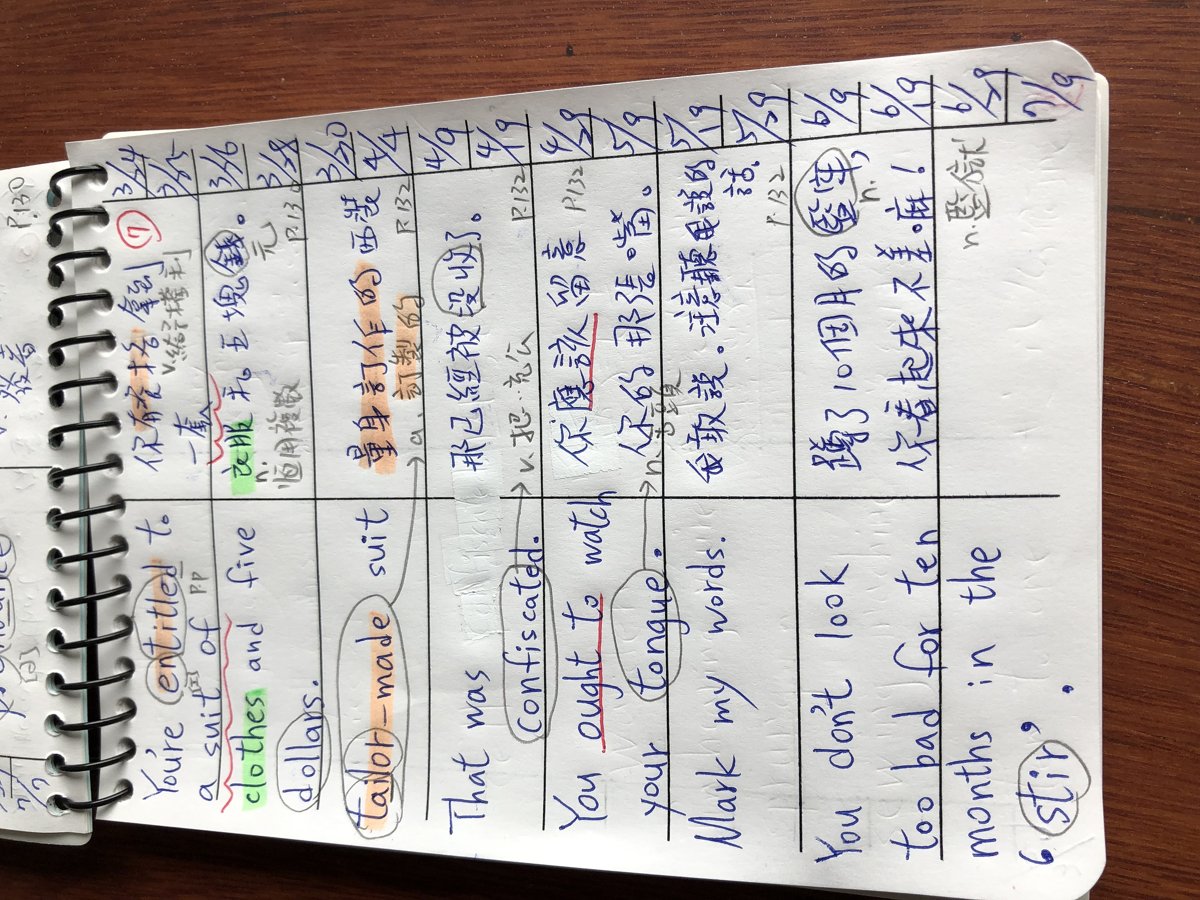 You're entitled to
a suit of
clothes and five
dollars.
p.p
你有資格拿到
⑦
v.給予權利
一套
衣服和五塊錢。
n.
恒用複數
元
P.130
3/24
3/25
3/26
3/28
tailor-made suit
量身訂作的西裝
a. 訂製的
P.132
3/30
4/4
That was
confiscated.
那已經被沒收了。
v.把…充公
P.132
4/9
4/19
You ought to watch
your tongue.
你應該留意
P.132
你的那張嘴。
n.舌頭
4/29
5/9
Mark my words.
我敢說。注意聽我說的
話。
P.132
5/19
5/29
You don't look
too bad for ten
months in the
"stir".
蹲了10個月的監牢,
n.
你看起來不差嘛!
n.監獄
6/9
6/19
6/29
7/9
P.130